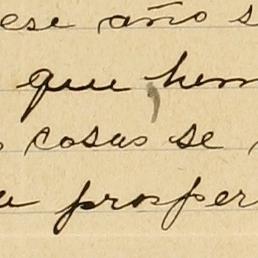 ese año s
que hem
cosas se
prosper